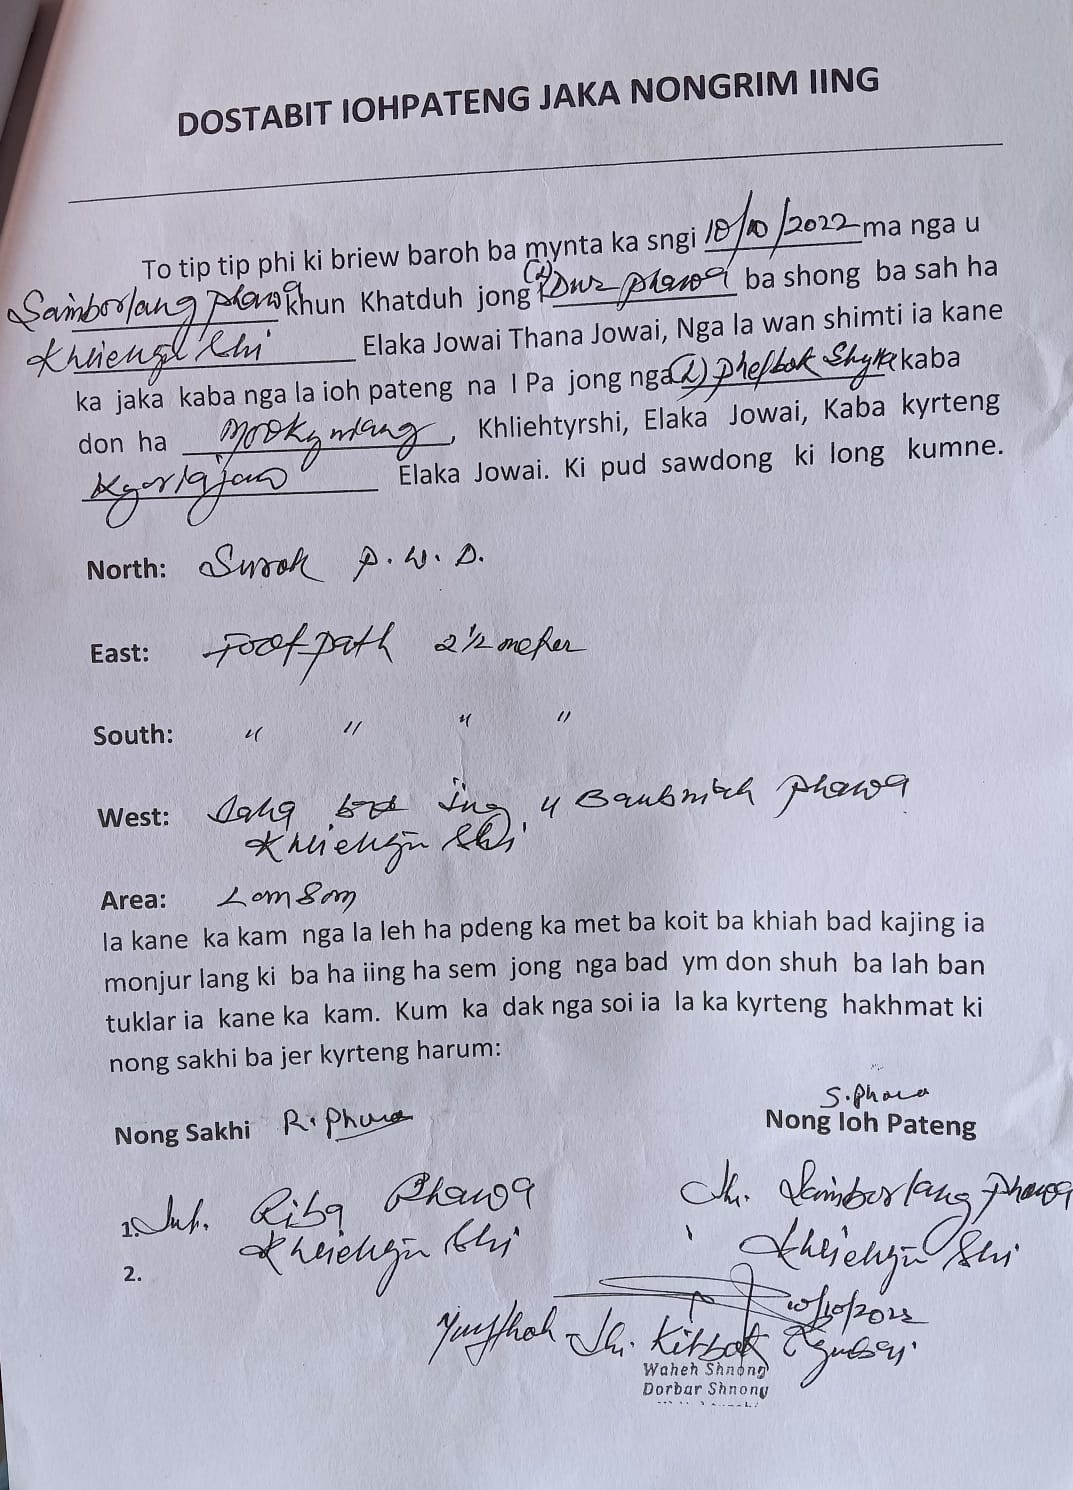 DOSTABIT IOHPATENG JAKA NONGRIM IING
To tip tip phi ki briew baroh ba mynta ka sngi 10/10/2022 ma nga u
Samborlang Phawa khun Khatduh jong Phawa ba shong ba sah ha
Elaka Jowai Thana Jowai, Nga la wan shimti ia kane
ka jaka kaba nga la ioh pateng na I Pa jong nga (L) Phelbok Shylla kaba
don ha Mookyndeng, Khliehtyrshi, Elaka Jowai, Kaba kyrteng
Elaka Jowai. Ki pud sawdong ki long kumne.
North: Surok P.W.D.
East: Foot path 2½ meter
South: " " " "
West: ing u Phawa
Area:
Ia kane ka kam nga la leh ha pdeng ka met ba koit ba khiah bad kajing ia
monjur lang ki ba ha iing ha sem jong nga bad ym don shuh ba lah ban
tuklar ia kane ka kam. Kum ka dak nga soi ia la ka kyrteng hakhmat ki
nong sakhi ba jer kyrteng harum:
S. Phawa
Nong Sakhi R. Phawa Nong Ioh Pateng
1. Riba Phawa Samborlang Phawa
2.
10/10/2022
Waheh Shnong
Dorbar Shnong